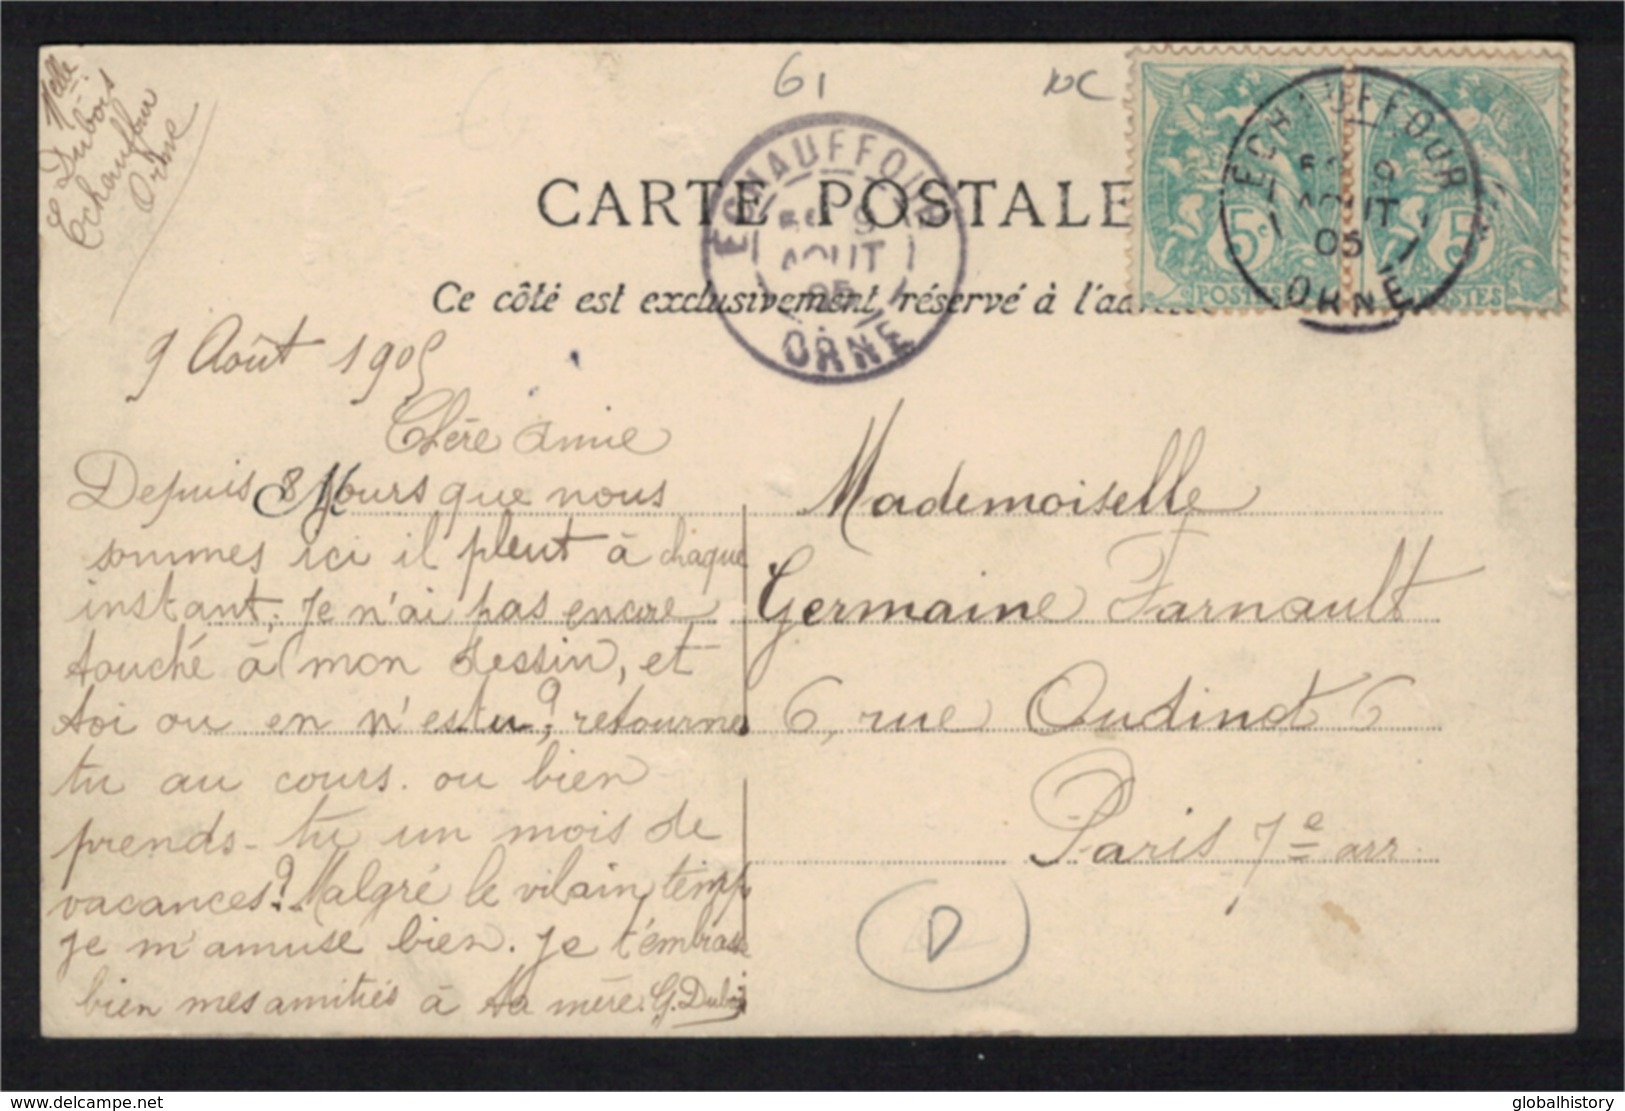 Melle
Dubois
Echauffour
Orne
61
CARTE POSTALE
Ce côté est exclusivement réservé à l'adresse
ECHAUFFOUR
9
AOUT
05
ORNE
ECHAUFFOUR
9
AOUT
05
ORNE
5c
POSTES
5
POSTES
9 Août 1905
Chère Amie
Depuis 8 jours que nous
sommes ici il pleut à chaque
instant, Je n'ai pas encore
touché à mon dessin, et
toi ou en n'es tu? retourne
tu au cours. ou bien
prends-tu un mois de
vacances? Malgré le vilain temps
je m'amuse bien. Je t'embrasse
bien mes amitiés à ta mère. G. Dubois
Mademoiselle
Germaine Farnault
6, rue Oudinot 6
Paris 7e arr.
D
www.delcampe.net
globalhistory